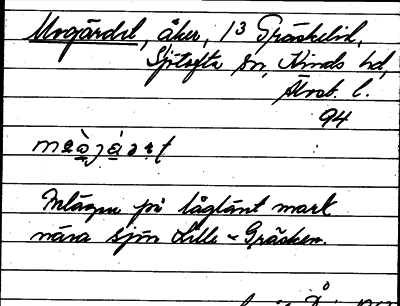 Mogärdet, åker, 13 Gräskelid,
Sjötofta sn, Kinds hd,
Älvsb. l.
94
Inlägor på låglänt mark
nära sjön Lille-Gräsken.